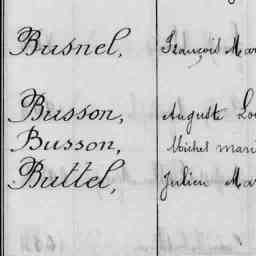 Busnel, François Mar
Busson, Auguste Lou
Busson, Michel mari
Buttel, Julien Mar